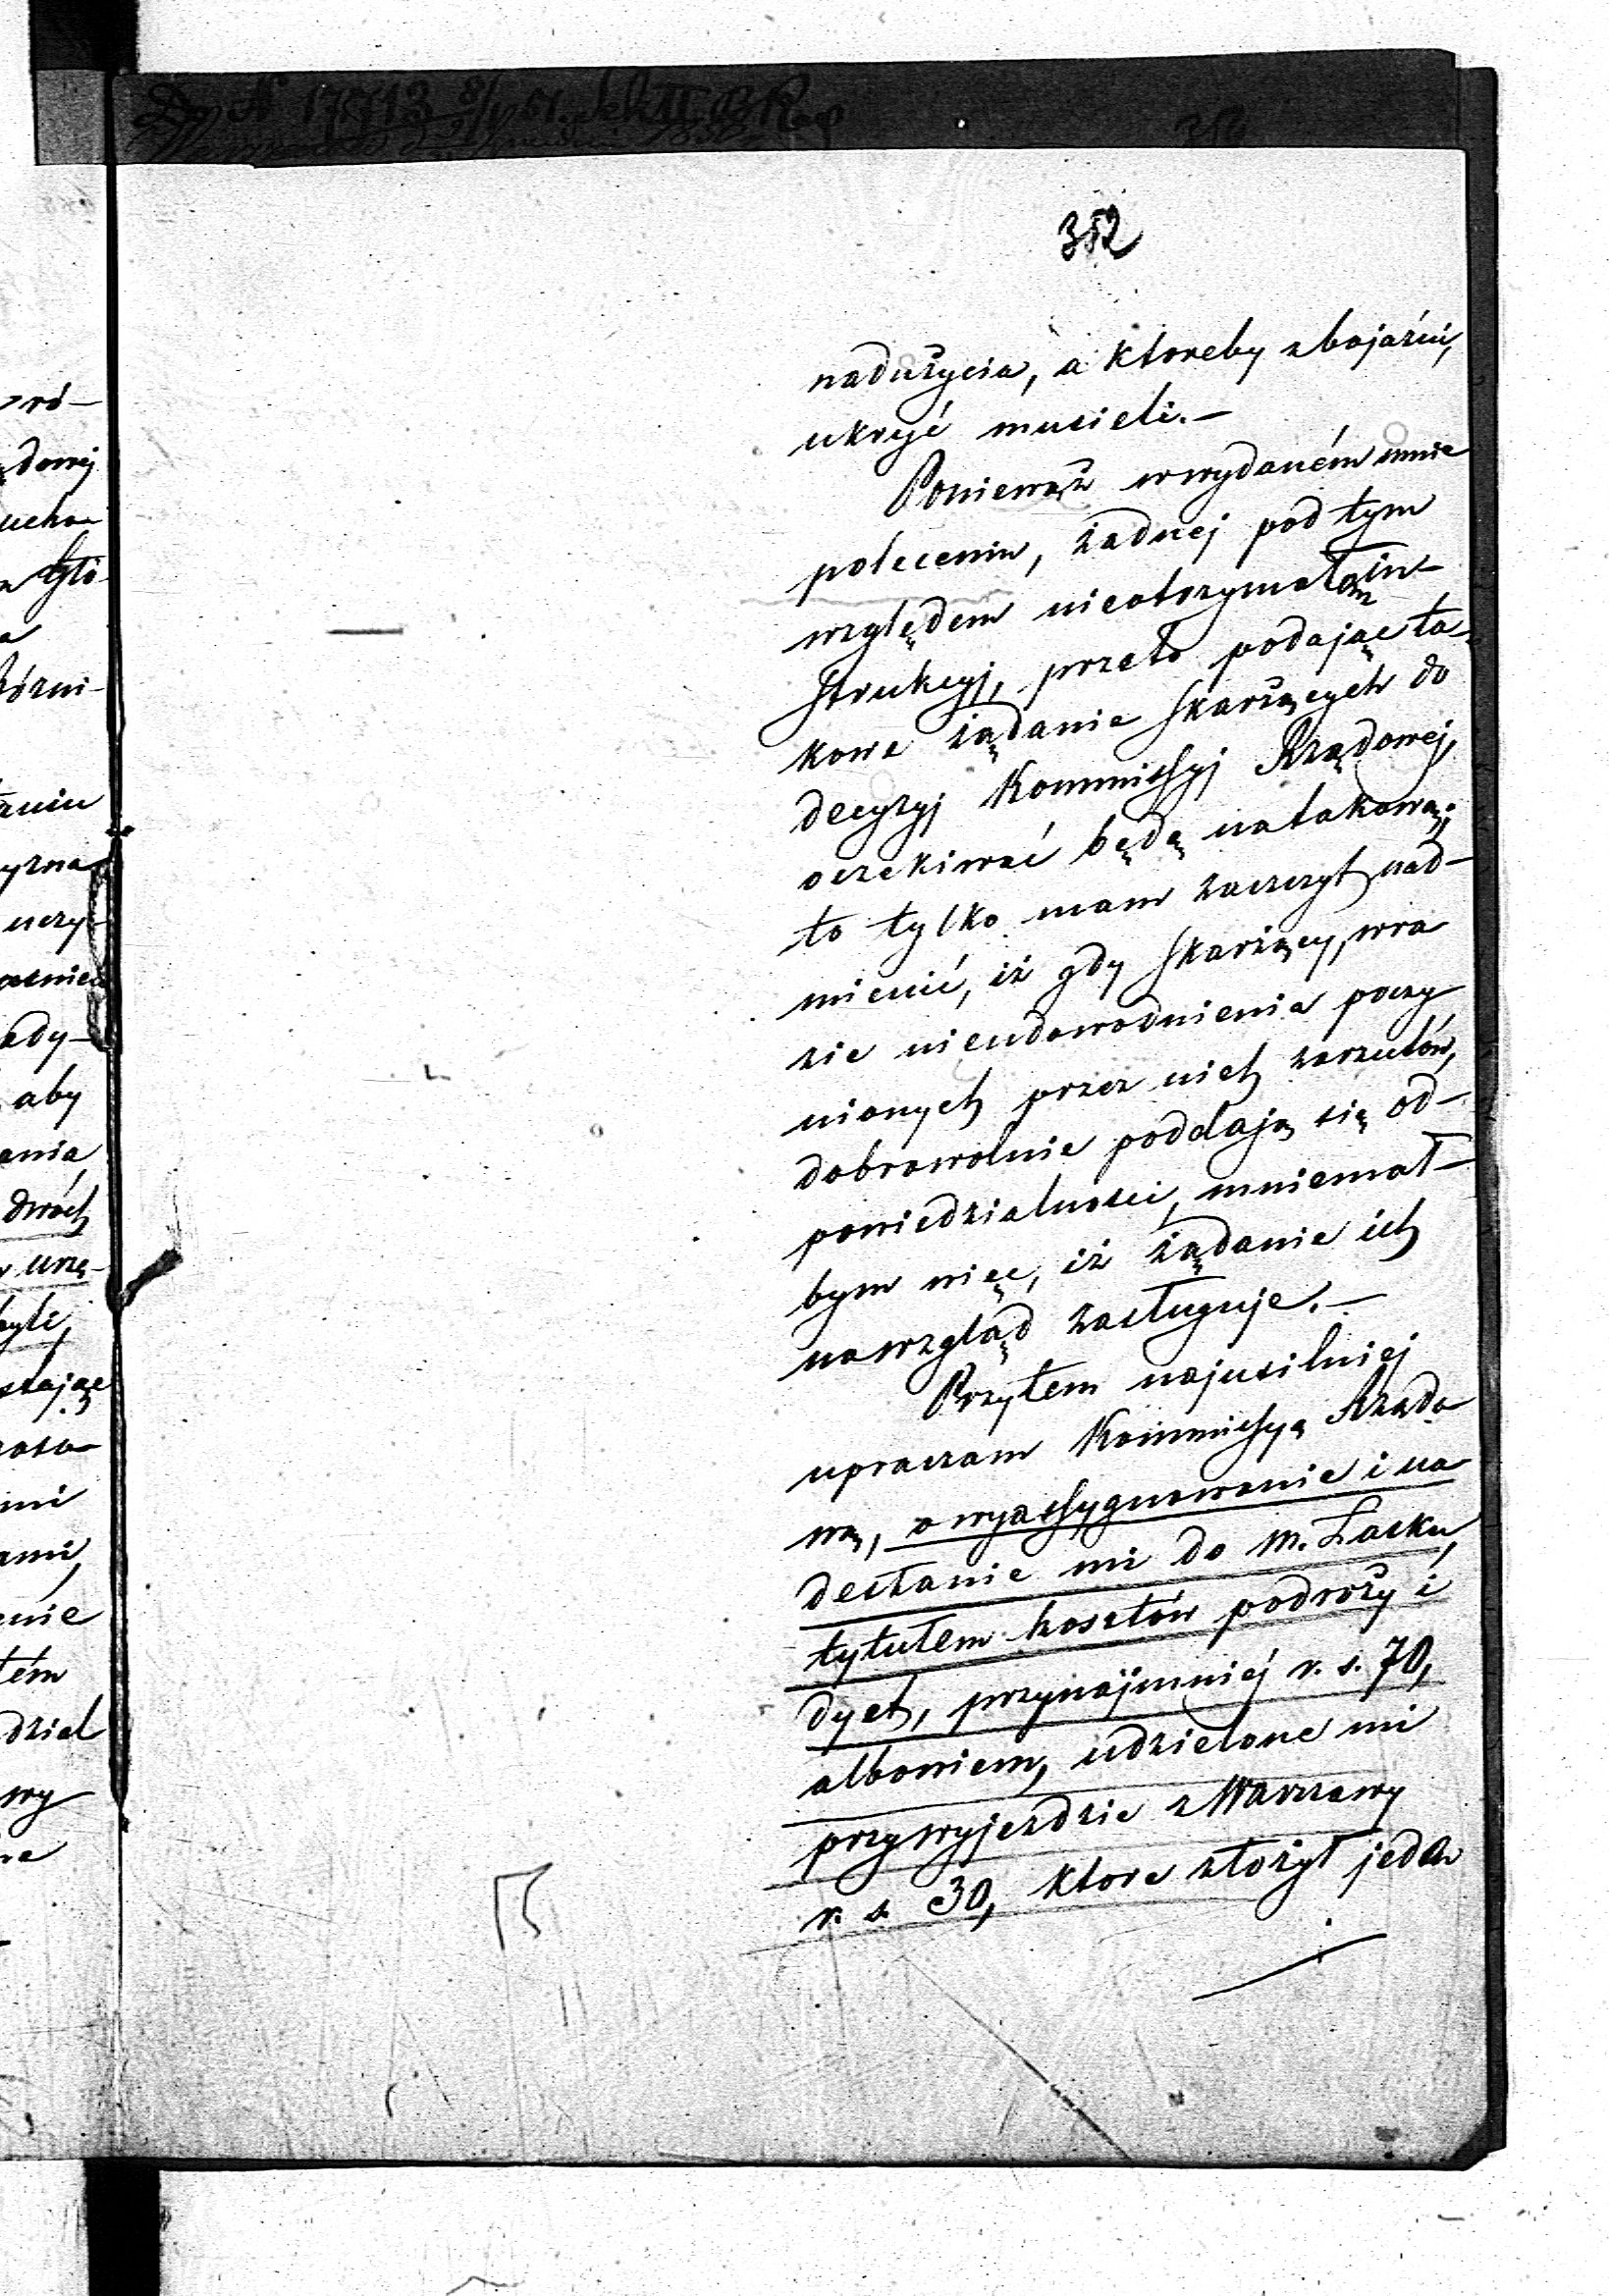 352
nadużycia, a ktoreby z bojaźni,
ukryć musieli.—
Ponieważ w wydaném mnie
poleceniu, żadnej pod tym
względem nieotrzymałem in-
strukcyj, przeto podając ta-
kowe żądanie skarżących do
decyzyj Kommissyj Rządowej,
oczekiwać będę na takową;
to tylko mam zaszczyt nad-
mienić, iż gdy skarżący, w ra
zie nieudowodnienia poczy
nionych przez nich zarzutów,
dobrowolnie poddają się od-
powiedzialności, mniemał-
bym więc, iż żądanie ich
na wzgląd zasługuje.—
Przytem najusilniej
upraszam Kommissyą Rządo
wą, o wyassygnowanie i na
desłanie mi do m. Łasku,
tytułem kosztów podroży i
dyet, przynajmniej r. s. 70,
albowiem, udzielone mi
przy wyjezdzie z Warszawy
r. s. 30, ktore złożył jeden
ró-
dowej
ucho-
a
uczy-
ady-
aby
ania
dwóch
urzę-
byli,
mi
ami,
enie
tém
dział
wy